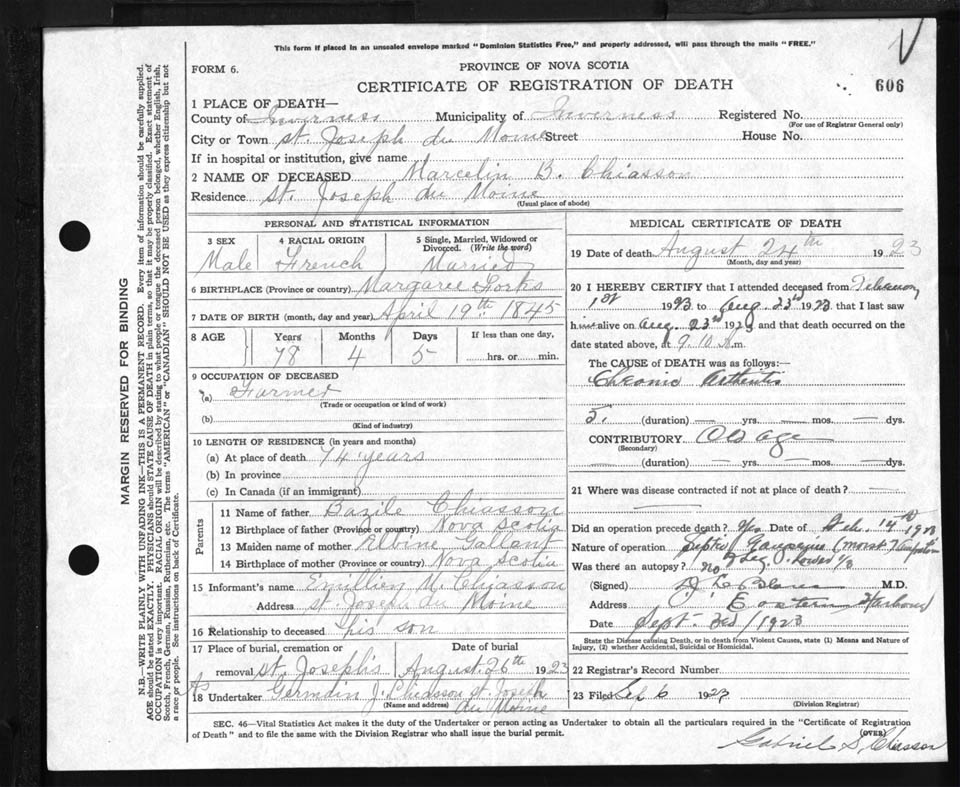 This form if placed in an unsealed envelope marked "Dominion Statistics Free," and properly addressed, will pass through the mails "FREE."
FORM 6.
PROVINCE OF NOVA SCOTIA
CERTIFICATE OF REGISTRATION OF DEATH
606
1 PLACE OF DEATH—
County of Inverness Municipality of Inverness Registered No.
(For use of Registrar General only)
City or Town St. Joseph du Moine Street House No.
If in hospital or institution, give name
2 NAME OF DECEASED Marcelin B. Chiasson
Residence St. Joseph du Moine
(Usual place of abode)
MARGIN RESERVED FOR BINDING
N.B.—WRITE PLAINLY WITH UNFADING INK—THIS IS A PERMANENT RECORD. Every item of information should be carefully supplied.
AGE should be stated EXACTLY. PHYSICIANS should STATE CAUSE OF DEATH in plain terms, so that it may be properly classified. Exact statement of
OCCUPATION is very important. RACIAL ORIGIN will be described by stating to what people or tongue the deceased person belonged, whether English, Irish,
Scotch, French, German, Russian, Ruthenian, etc. The terms "AMERICAN" or "CANADIAN" SHOULD NOT BE USED as they express citizenship but not
a race or people. See instructions on back of Certificate.
PERSONAL AND STATISTICAL INFORMATION
3 SEX
Male
4 RACIAL ORIGIN
French
5 Single, Married, Widowed or
Divorced. (Write the word)
Married
6 BIRTHPLACE (Province or country) Margaree Forks
7 DATE OF BIRTH (month, day and year) April 19th 1845
8 AGE Years Months Days If less than one day,
78 4 5 hrs. or min.
9 OCCUPATION OF DECEASED
(a) Farmer
(Trade or occupation or kind of work)
(b)
(Kind of industry)
10 LENGTH OF RESIDENCE (in years and months)
(a) At place of death 74 years
(b) In province
(c) In Canada (if an immigrant)
Parents
11 Name of father Bazile Chiasson
12 Birthplace of father (Province or country) Nova Scotia
13 Maiden name of mother Elbine Gallant
14 Birthplace of mother (Province or country) Nova Scotia
15 Informant's name Emillien M. Chiasson
Address St. Joseph du Moine
16 Relationship to deceased his son
17 Place of burial, cremation or Date of burial
removal St. Joseph's August 26th 1923
18 Undertaker Germain J. Chiasson St. Joseph
(Name and address) du Moine
MEDICAL CERTIFICATE OF DEATH
19 Date of death August 24th 1923
(Month, day and year)
20 I HEREBY CERTIFY that I attended deceased from February
1st 1923 to Aug. 23rd 1923 that I last saw
him alive on Aug. 23rd 192 and that death occurred on the
date stated above, at 9.10 m.
The CAUSE of DEATH was as follows:—
Chronic Arthritis
5. (duration) yrs. mos. dys.
CONTRIBUTORY Old age
(Secondary)
(duration) yrs. mos. dys.
21 Where was disease contracted if not at place of death?
Did an operation precede death? Yes Date of Feb. 14th 1923
Nature of operation Septic Gangrene (moist)
Was there an autopsy? No Leg Lower 1/3
(Signed) M.D.
Address Eastern Harbour
Date Sept. 3rd / 1923
State the Disease causing Death, or in death from Violent Causes, state (1) Means and Nature of
Injury, (2) whether Accidental, Suicidal or Homicidal.
22 Registrar's Record Number
23 Filed Sep 6 1923
(Division Registrar)
SEC. 46—Vital Statistics Act makes it the duty of the Undertaker or person acting as Undertaker to obtain all the particulars required in the "Certificate of Registration
of Death" and to file the same with the Division Registrar who shall issue the burial permit.
(OVER)
Gabriel S. Chiasson